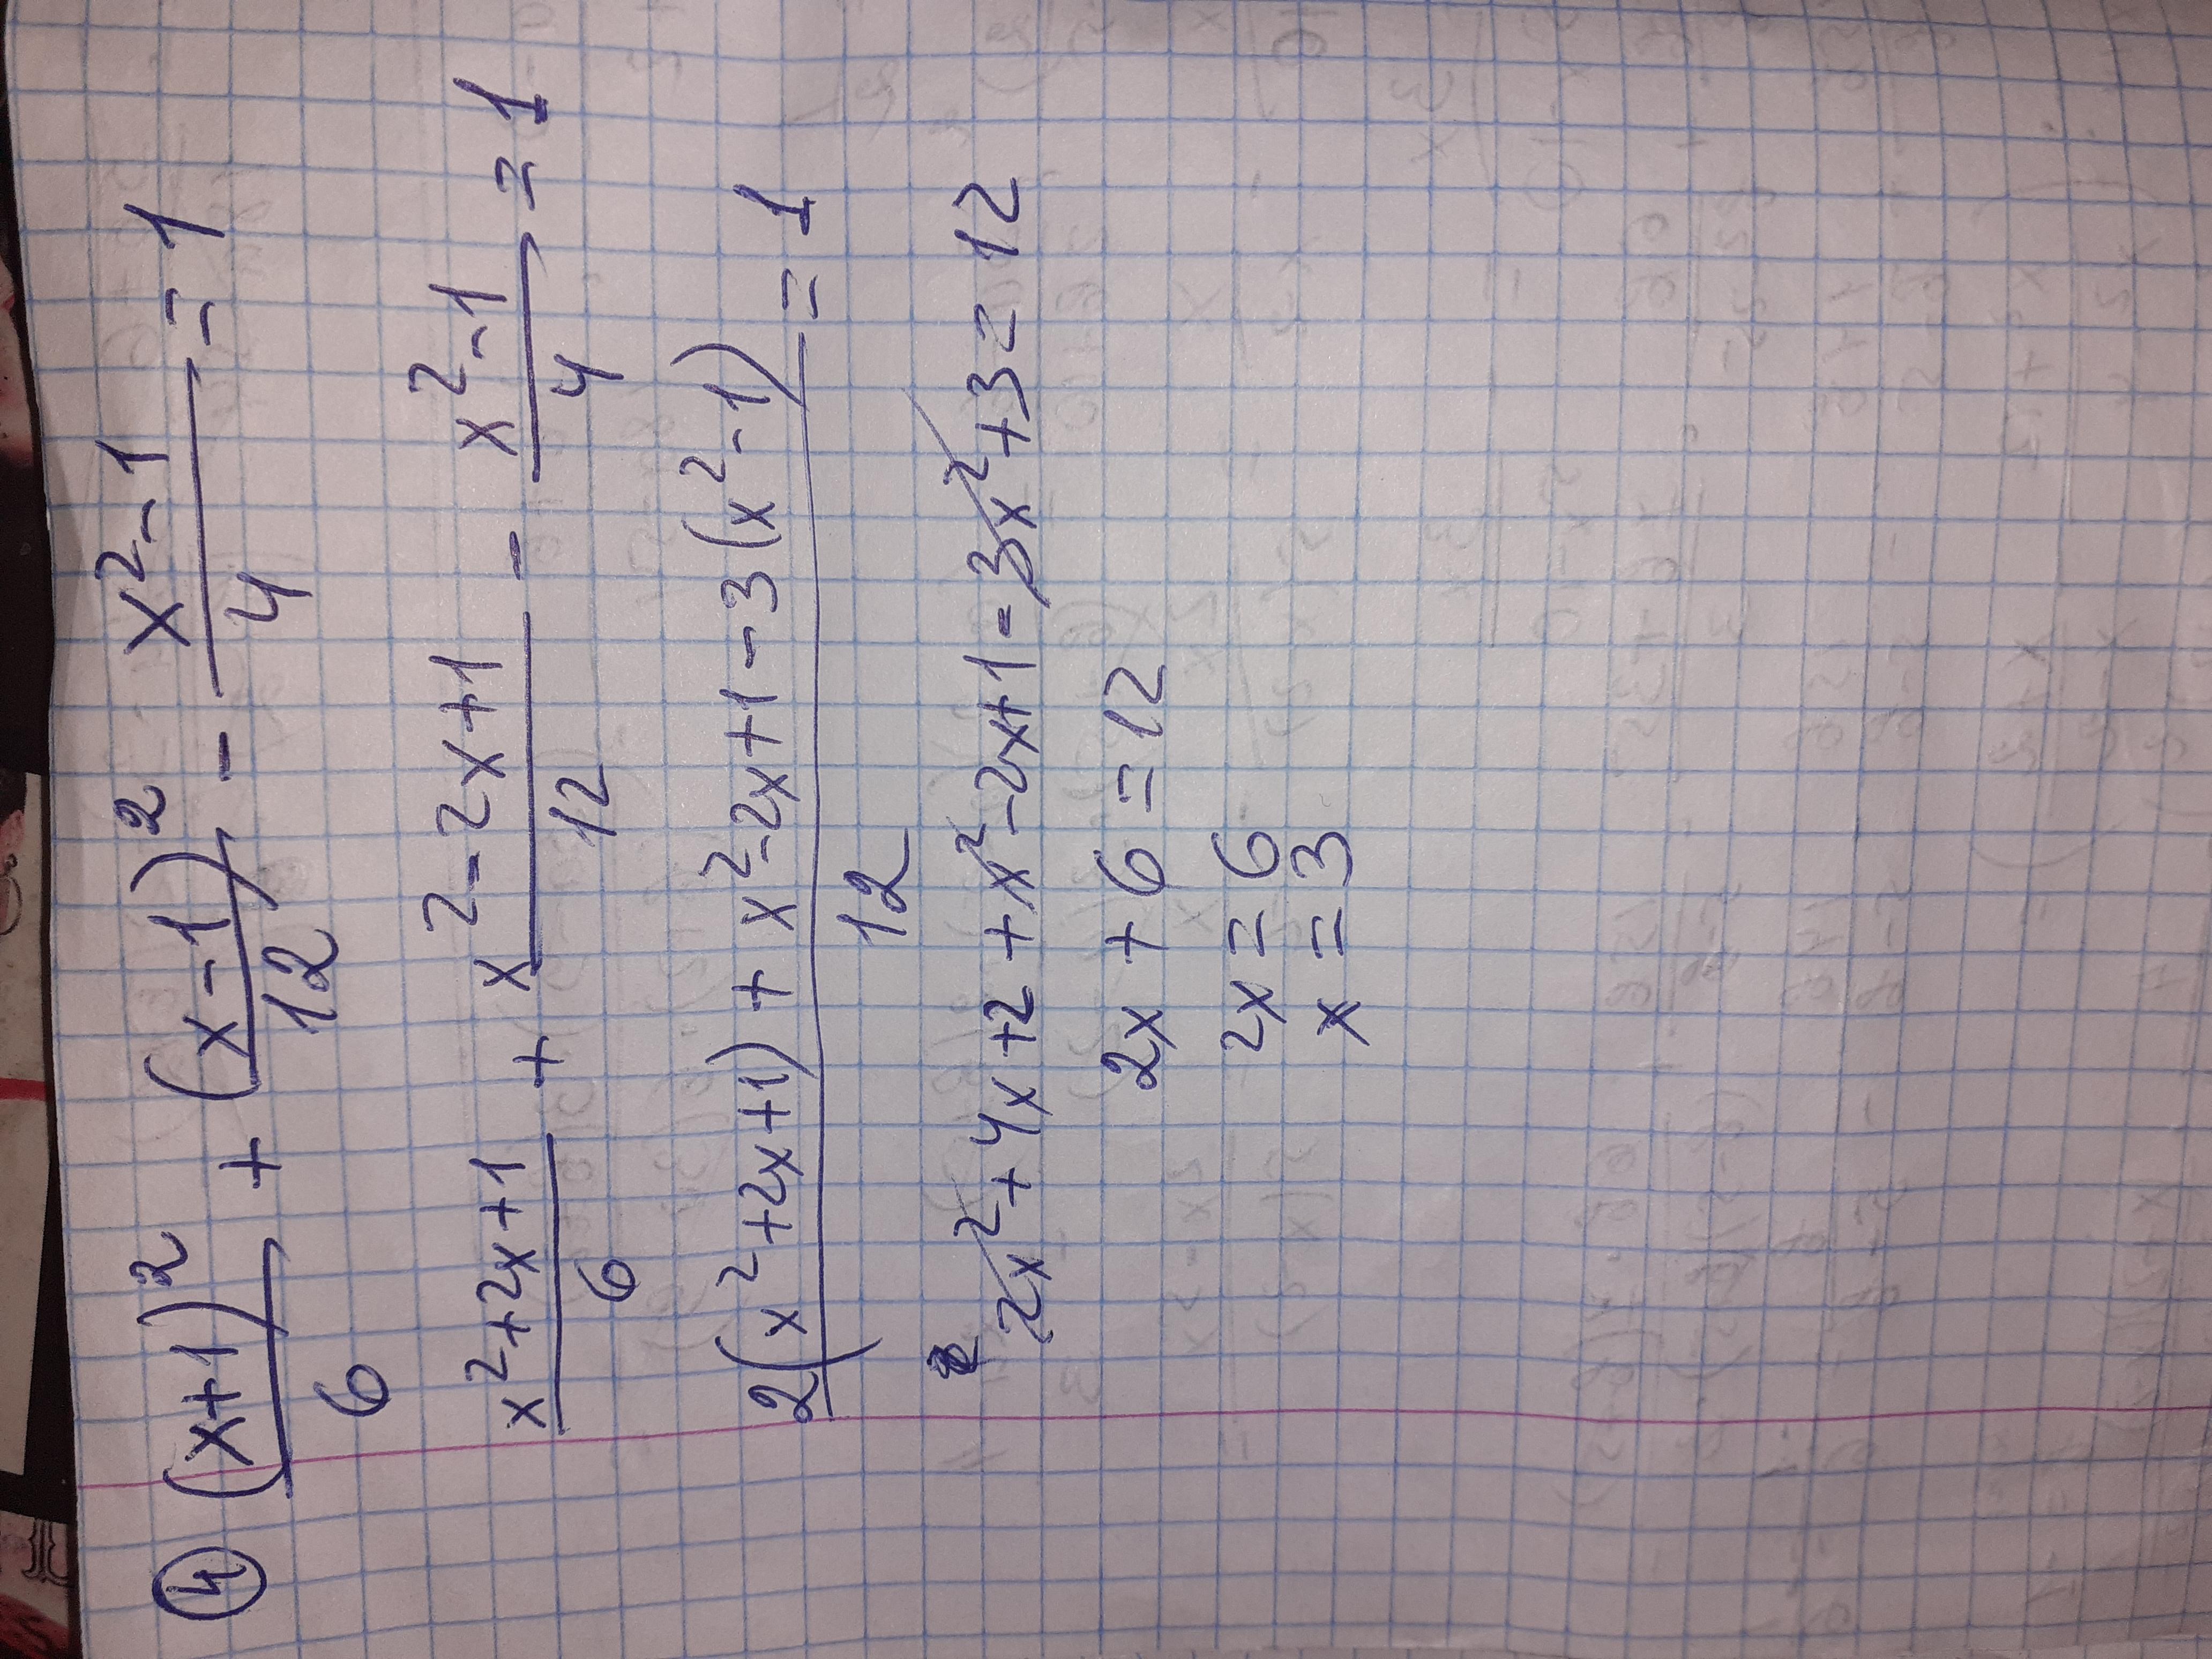 ④ (x+1)²/6 + (x-1)²/12 - x²-1/4 = 1
x²+2x+1/6 + x²-2x+1/12 - x²-1/4 = 1
2(x²+2x+1) + x²-2x+1-3(x²-1)/12 = 1
2x²+4x+2+x²-2x+1-3x²+3=12
2x+6=12
2x=6
x=3